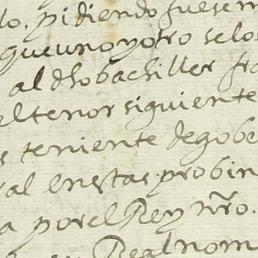 lo, pidiendo fuese m
que uno y otro se los
al dho bachiller fra
el tenor siguiente
s teniente de gobe
al en estas probin
a por el Rey nro.
Real nom